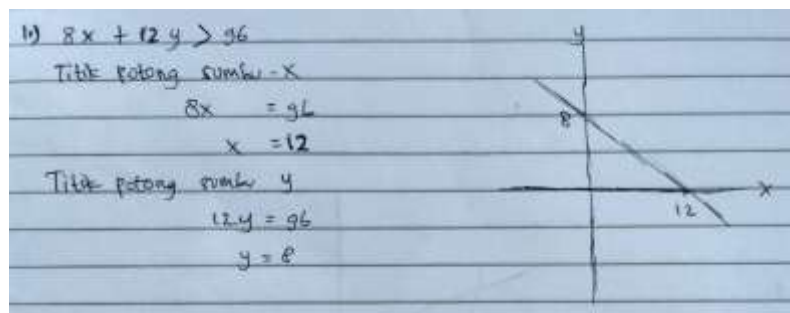 10) 8x + 12y > 96
Titik potong sumbu - x
8x = 96
x = 12
Titik potong sumbu y
12y = 96
y = 8
y
8
x
12